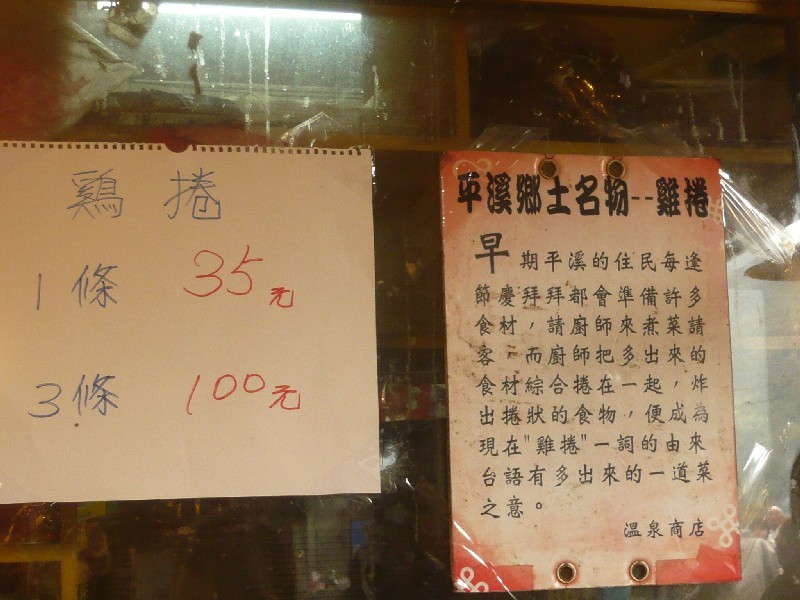 鶏捲
1條 35元
3條 100元
平溪鄉土名物--雞捲
早期平溪的住民每逢
節慶拜拜都會準備許多
食材，請廚師來煮菜請
客，而廚師把多出來的
食材綜合捲在一起，炸
出捲狀的食物，便成為
現在"雞捲"一詞的由來
台語有多出來的一道菜
之意。
溫泉商店